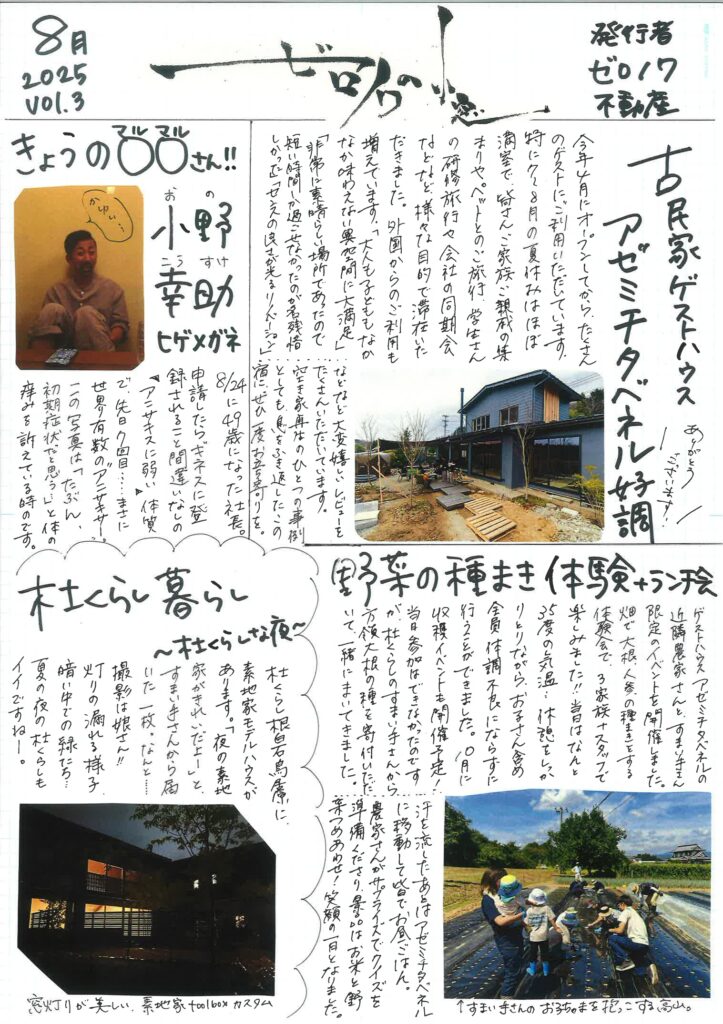 8月
2025
VOl.3
ゼロノワの小窓
発行者
ゼロノワ
不動産
古民家ゲストハウス
アゼミチタベネル好調
ありがとう
ございます!
今年4月にオープンしてから、たくさん
のゲストにご利用いただいています。
特に7~8月の夏休みはほぼ
満室で、皆さんご家族ご親戚の集
まりやペットとのご旅行、学生さん
の研修旅行や会社の同期会
などなど、様々な目的で滞在いた
だきました。外国からのご利用も
増えています。「大人も子どももなか
なか味わえない異空間に大満足」
「非常に素晴らしい場所であったので
短い時間しか過ごせなかったのが名残惜
しかった」「センスの良さが光るリノベーション」
などなど大変嬉しいレビューを
たくさんいただいています。
空き家再生のひとつの事例
としても、息をふき返したこの
宿にぜひ一度お立ち寄りを。
きょうの〇〇さん!!
マル マル
かゆい…
おの
小野
こうすけ
幸助
ヒゲメガネ
8/24に49歳になった社長。
"アニサキスに弱い体質"
申請したらギネスに登
録されること間違いなしの
で、先日7回目…まさに
世界有数の"アニサキサー"
この写真は「たぶん、
初期症状だと思う」と体の
痒みを訴えている時のです。
野菜の種まき体験+ランチ会
ゲストハウス アゼミチタベネルの
近隣農家さんと、すまい手さん
限定のイベントを開催しました。
畑で大根、人参の種まきをする
体験会で、3家族+スタッフで
楽しみました!!当日はなんと
35度の気温…休憩をしっか
りとりながら、お子さん含め
全員体調不良にならずに
行うことができました。10月に
収穫イベントも開催予定!
当日参加はできなかったのです
が、杜くらしのすまい手さんから
方領大根の種を寄付いただ
いて、一緒にまいてきました。
汗を流したあとはアゼミチタベネル
に移動して皆でお昼ごはん。
農家さんがサプライズでクイズを
準備くださり、景品はお米と野
菜つめあわせ!笑顔の一日となりました。
↑すまい手さんのお子ちゃまを抱っこする高山。
杜くらし暮らし
~杜くらしな夜~
杜くらし根白石烏原に、
素地家モデルハウスが
あります。「夜の素地
家がきれいだよー」と、
すまい手さんから届
いた一枚。なんと……
撮影は娘さん!!
灯りの漏れる様子、
暗い中での緑たち…
夏の夜の杜くらしも
イイですねー。
窓灯りが美しい、素地家toolboxカスタム